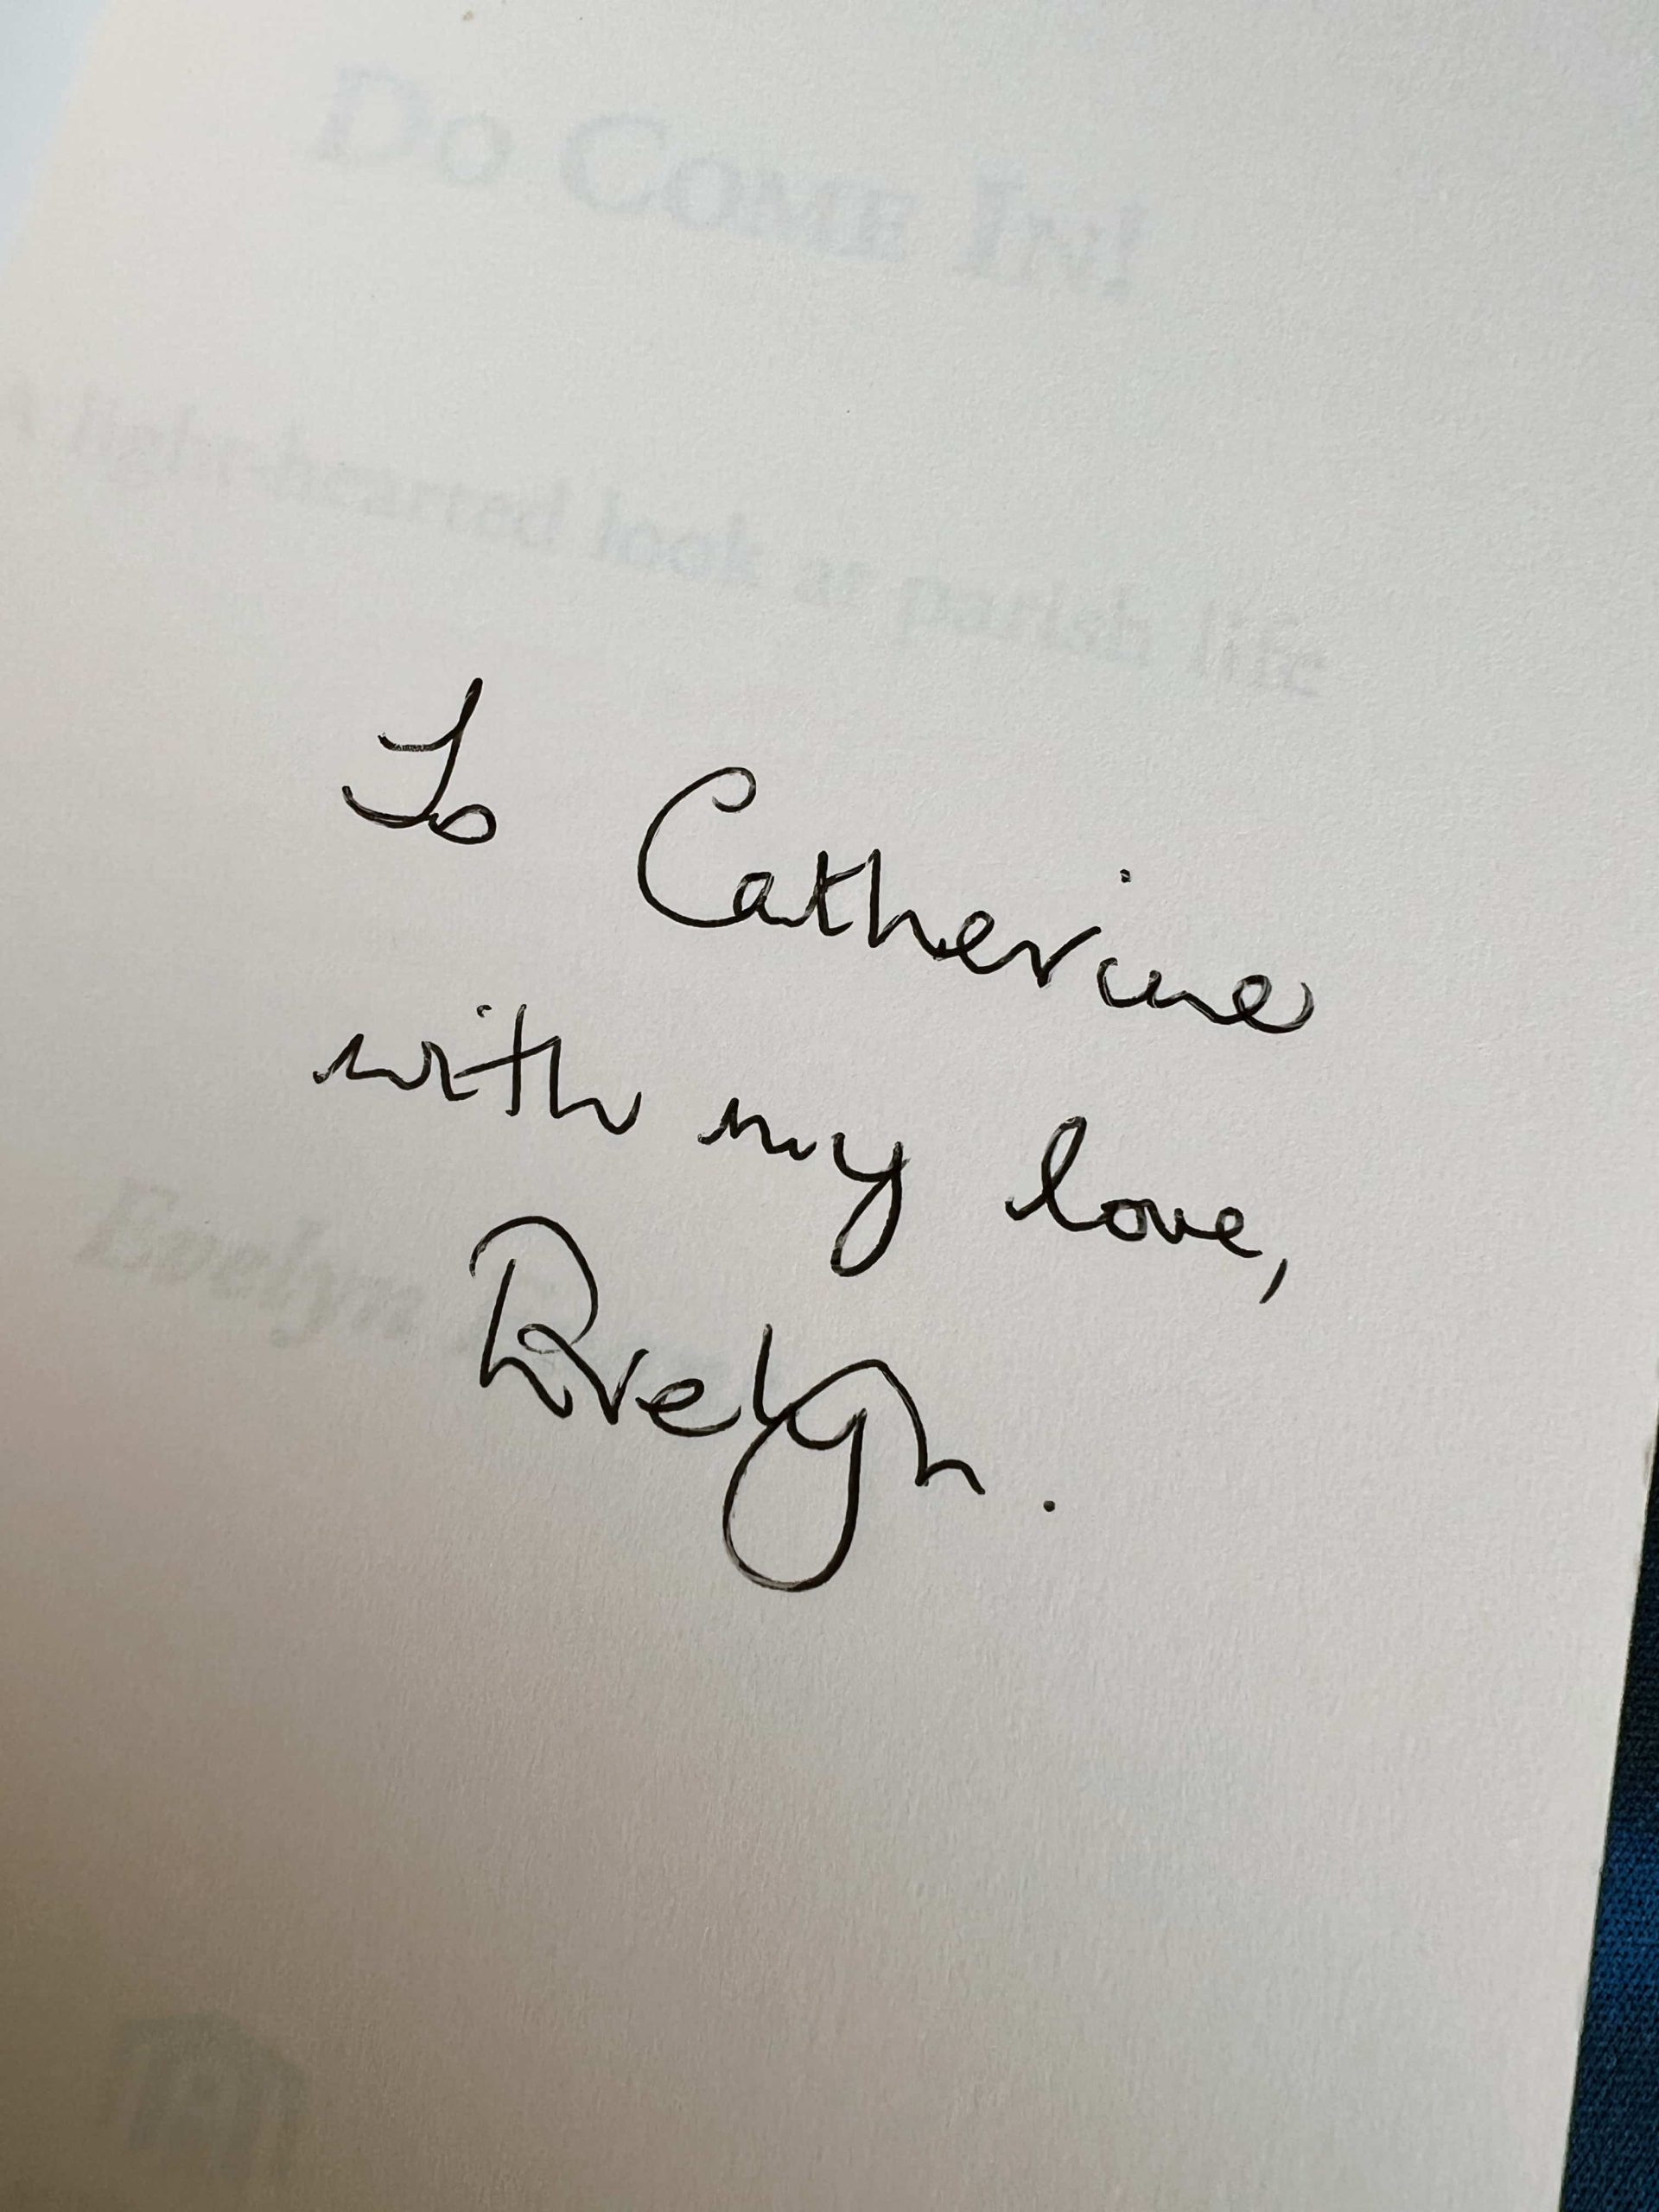 Do Come In!
A light-hearted look at parish life
To Catherine
with my love,
Evelyn
Evelyn.